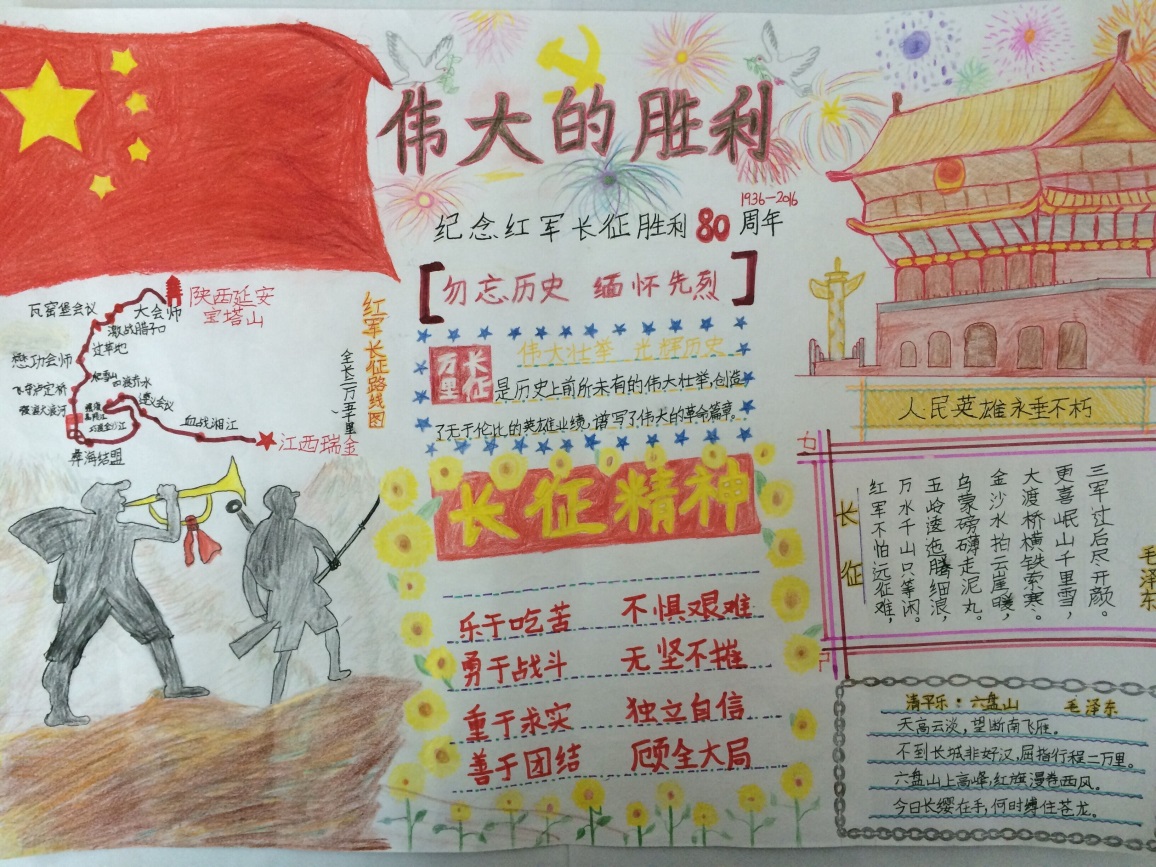 伟大的胜利
1936-2016
纪念红军长征胜利80周年
[勿忘历史 缅怀先烈]
长征万里
伟大壮举 光辉历史
是历史上前所未有的伟大壮举,创造
了无于伦比的英雄业绩,谱写了伟大的革命篇章。
长征精神
乐于吃苦 不惧艰难
勇于战斗 无坚不摧
重于求实 独立自信
善于团结 顾全大局
红军长征路线图
全长二万五千里
陕西延安
宝塔山
瓦窑堡会议
大会师
激战腊子口
过草地
懋功会师
爬雪山
飞夺泸定桥
四渡赤水
强渡大渡河
遵义会议
巧渡金沙江
血战湘江
江西瑞金
彝海结盟
人民英雄永垂不朽
长征
毛泽东
红军不怕远征难,
万水千山只等闲。
五岭逶迤腾细浪,
乌蒙磅礴走泥丸。
金沙水拍云崖暖,
大渡桥横铁索寒。
更喜岷山千里雪,
三军过后尽开颜。
清平乐:六盘山 毛泽东
天高云淡,望断南飞雁。
不到长城非好汉,屈指行程二万里。
六盘山上高峰,红旗漫卷西风。
今日长缨在手,何时缚住苍龙。